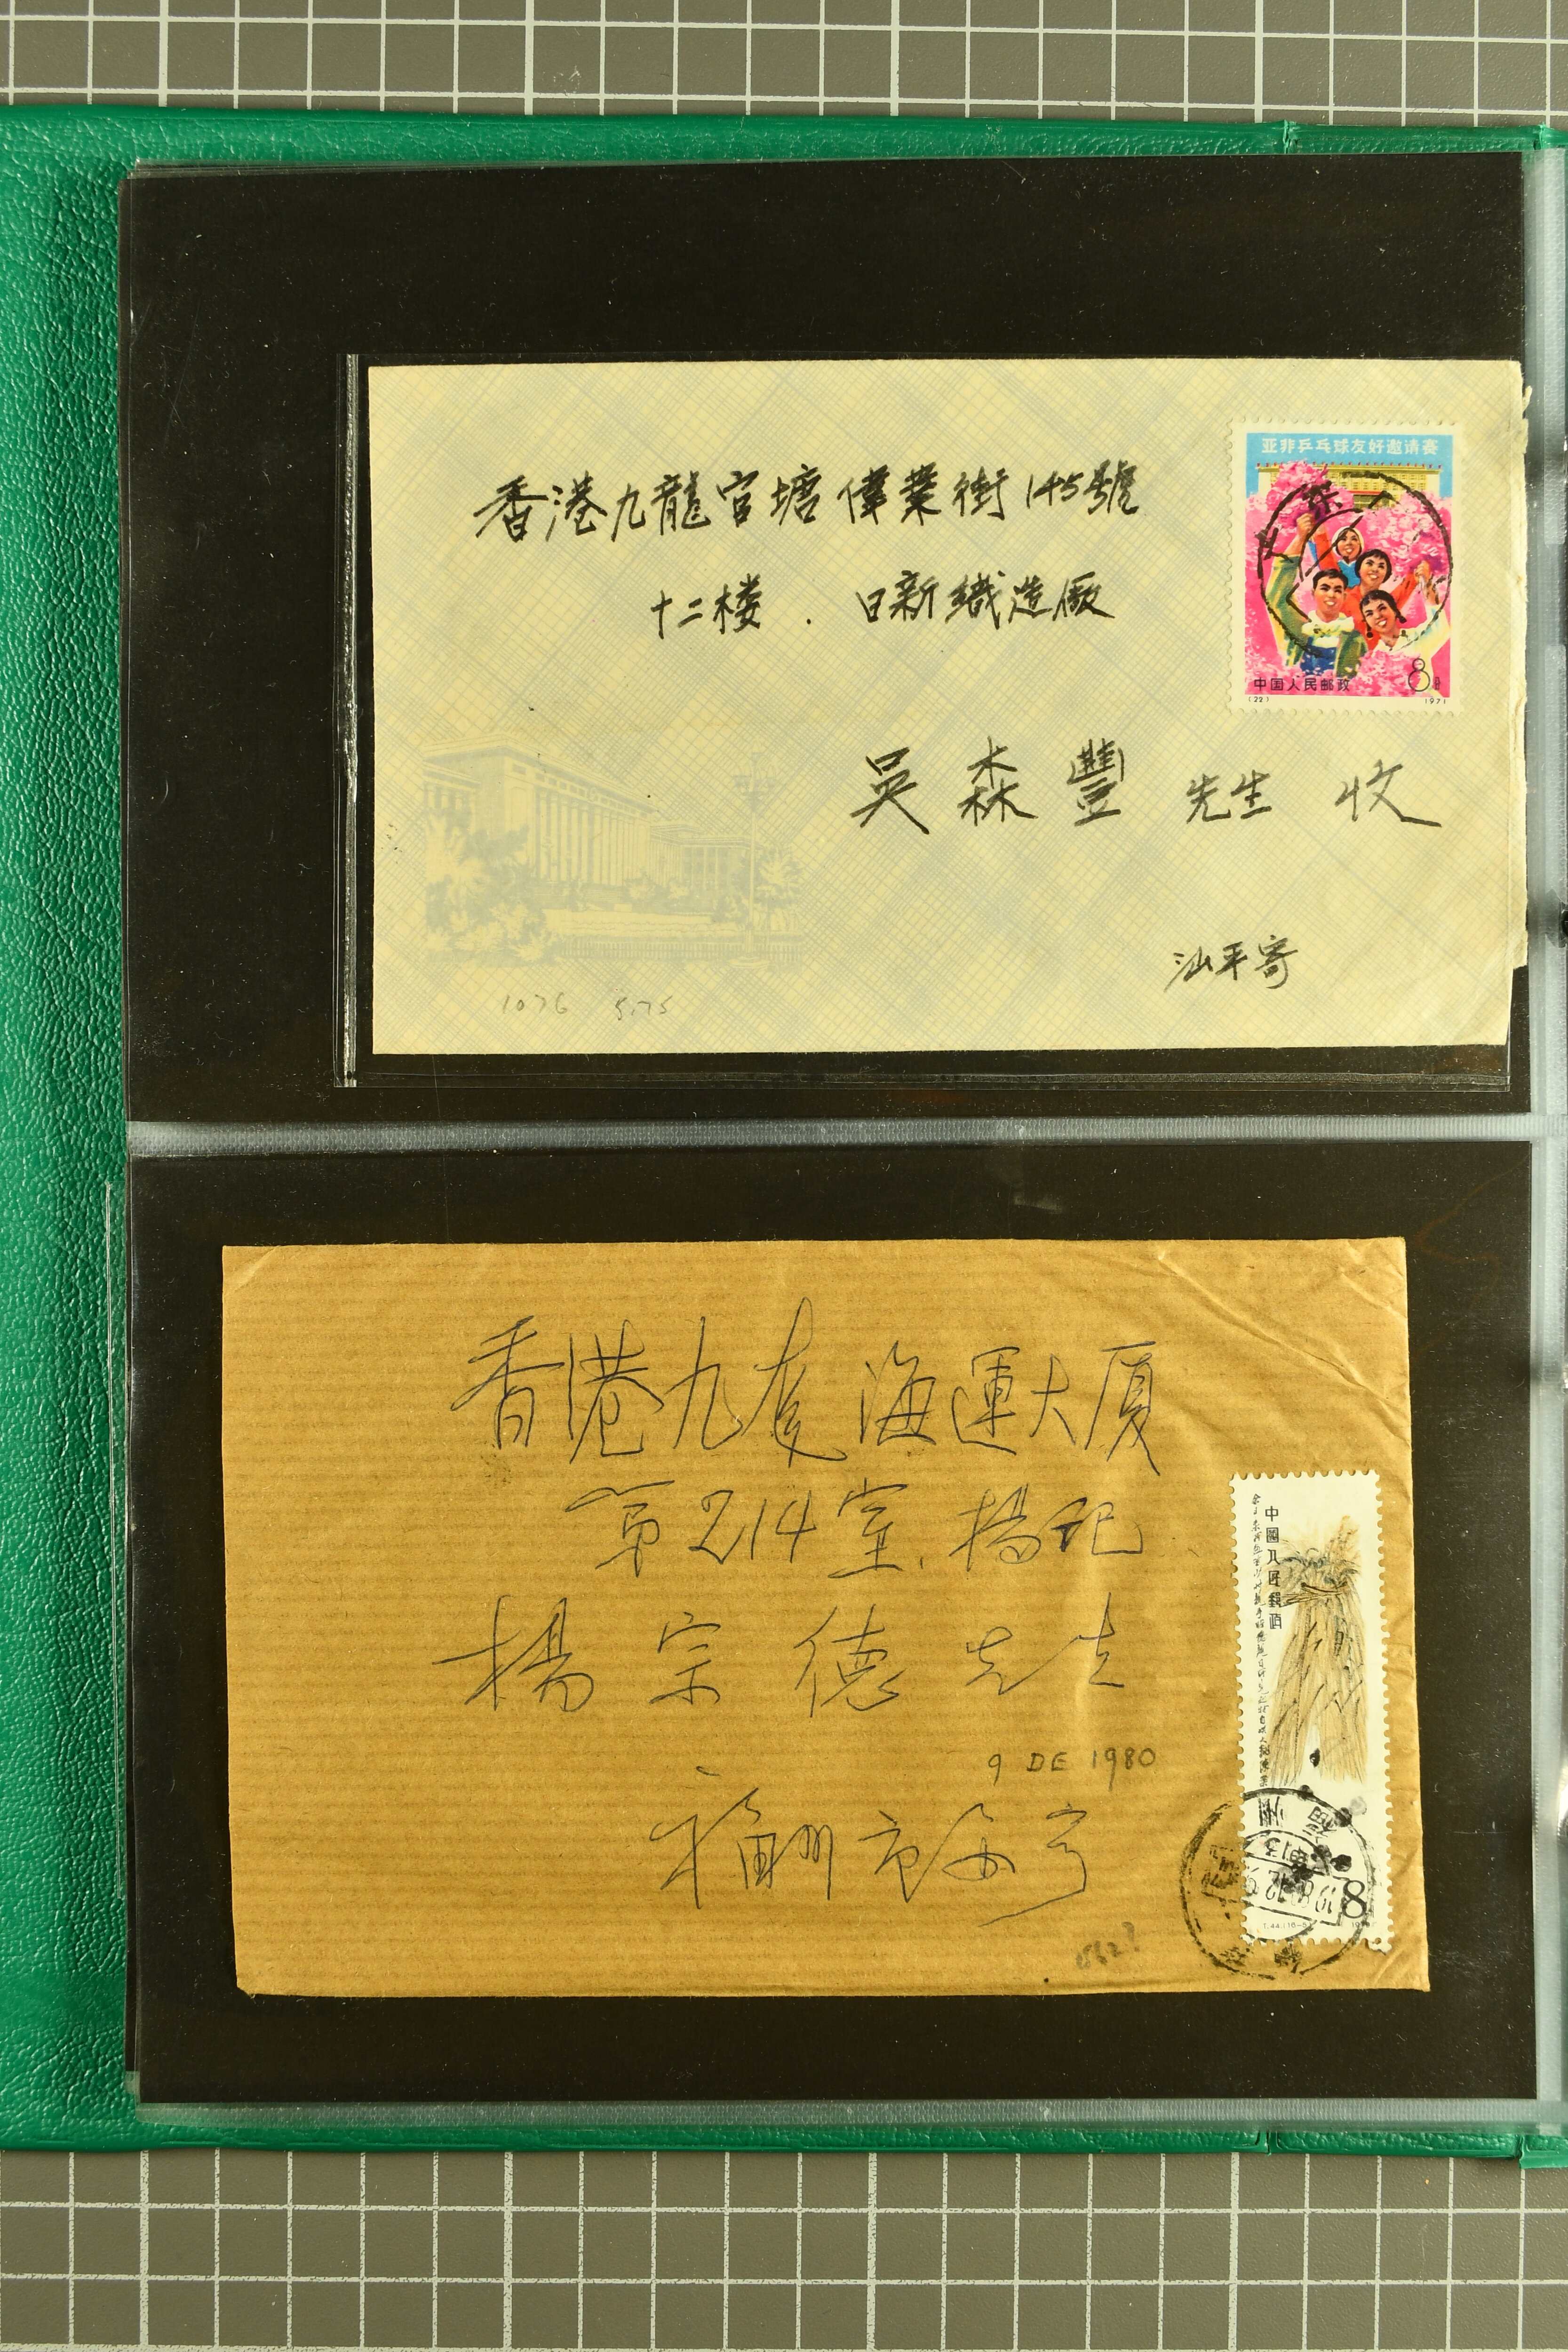 香港九龍官塘偉業街145號
十二楼. 日新織造廠
吳森豐先生 收
汕平寄
1076 5.75
亚非乒乓球友好邀请赛
中国人民邮政
8分
(22) 1971
香港九龙海運大厦
第214室. 楊记
楊宗德先生
9 DE 1980
福州市
中國人民郵政
8
福州